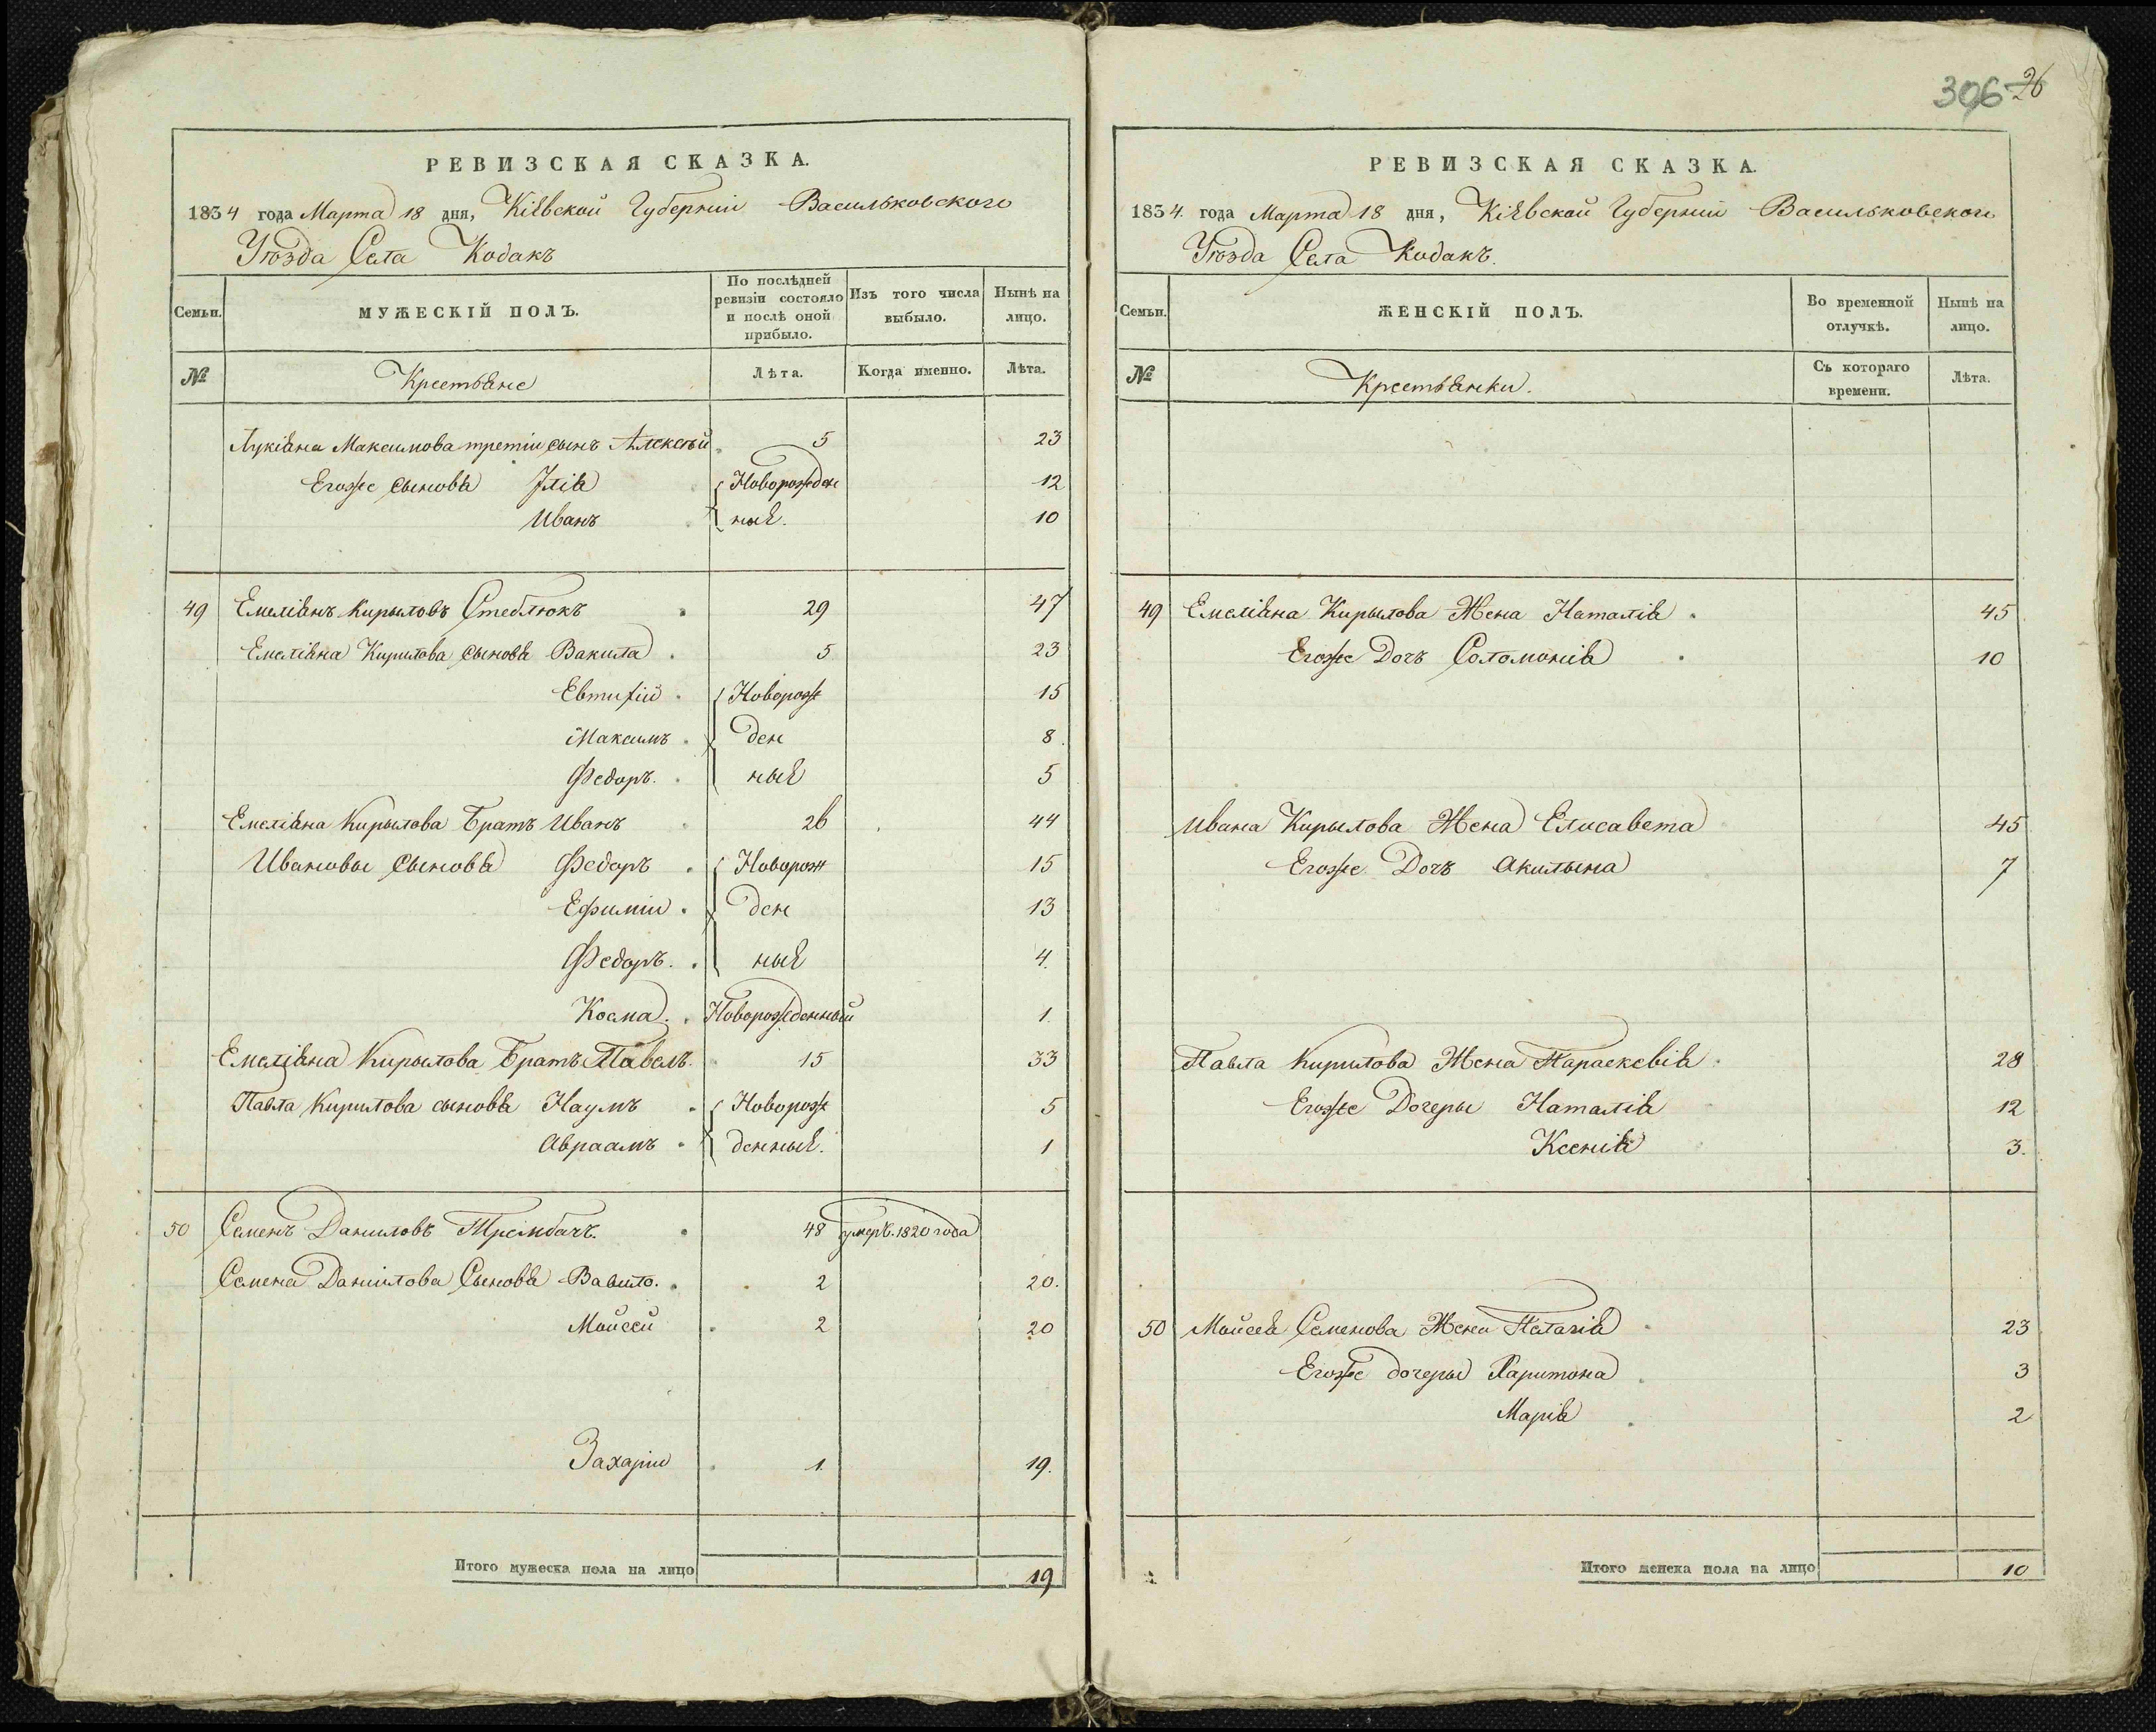 306 26
РЕВИЗСКАЯ СКАЗКА.
1834 года Марта 18 дня, Кіевской Губерніи Васильковского
Уѣзда Села Кодакъ
Семьи.
МУЖЕСКІЙ ПОЛЪ.
По послѣдней ревизіи состояло и послѣ оной прибыло.
Изъ того числа выбыло.
Нынѣ на лицо.
№
Крестьяне
Лѣта.
Когда именно.
Лѣта.
Лукіяна Максимова третіи сынъ Алексѣй 5 23
Егоже сыновья Іліа Новорожден 12
Иванъ ные. 10
49 Емеліянъ Кирыловъ Стеблюкъ 29 47
Емеліяна Кирилова сыновья Вакила 5 23
Евтихій Новорож 15
Максимъ ден 8
Федоръ. ные 5
Емеліяна Кирылова Братъ Иванъ 26 44
Ивановы Сыновья Федоръ Новорож 15
Ефиміи ден 13
Федоръ. ные 4.
Косма. Новорожденный 1.
Емеліяна Кирылова Братъ Павелъ. 15 33
Павла Кирилова сыновья Наумъ Новорож 5
Авраамъ денные. 1
50 Семенъ Даниловъ Трембачъ. 48 умеръ. 1820 года
Семена Данілова Сыновья Вавило. 2 20.
Мойсей 2 20
Захаріи 1. 19.
Итого мужеска пола на лицо 19
РЕВИЗСКАЯ СКАЗКА.
1834. года Марта 18 дня, Кіевской Губерніи Васильковского
Уѣзда Села Кодакъ.
Семьи.
ЖЕНСКІЙ ПОЛЪ.
Во временной отлучкѣ.
Нынѣ на лицо.
№
Крестьянки.
Съ котораго времени.
Лѣта.
49 Емеліяна Кирылова Жена Наталія 45
Егоже Дочъ Соломонія 10
Ивана Кирылова Жена Елисавета 45
Егоже Дочъ Акилына 7
Павла Кирилова Жена Параскевія 28
Егоже Дочеры Наталія 12
Ксенія 3.
50 Мойсея Семенова Жена Пелагія 23
Егоже дочеры Харитона 3
Марія 2
Итого женска пола на лицо 10